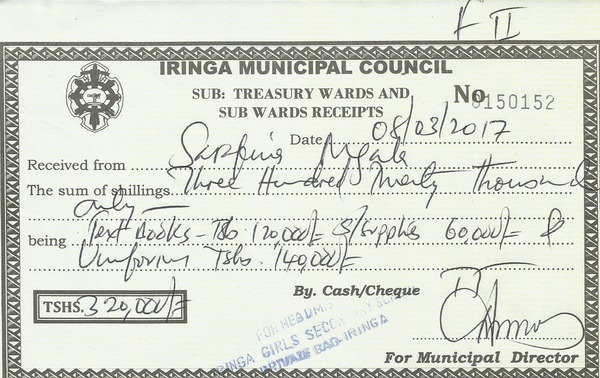 F II
IRINGA MUNICIPAL COUNCIL
SUB: TREASURY WARDS AND
SUB WARDS RECEIPTS
No 0150152
Date 08/03/2017
Received from
The sum of shillings Three Hundred Twenty Thousand
only
being Text Books - Tshs 120,000/= S/Supplies 60,000/= &
Uniforms Tshs. 140,000/=
TSHS. 320,000/=
By. Cash/Cheque
For Municipal Director
FOR HEADMIS
IRINGA GIRLS SECONDARY SCHOOL
PRIVATE BAG-IRINGA